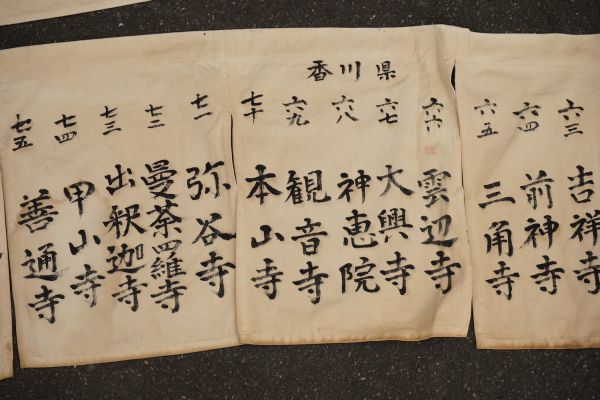 香川県
六三 吉祥寺
六四 前神寺
六五 三角寺
六六 雲辺寺
六七 大興寺
六八 神恵院
六九 観音寺
七十 本山寺
七一 弥谷寺
七二 曼荼羅寺
七三 出釈迦寺
七四 甲山寺
七五 善通寺